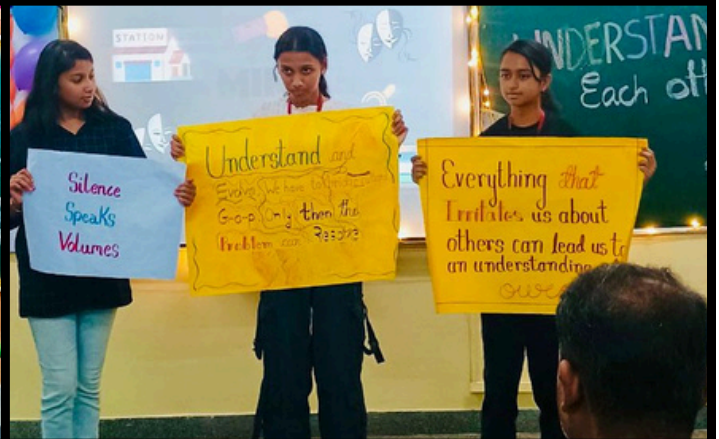 STATION
UNDERSTAN
Each oth
Silence
Speaks
Volumes
Understand and
Evolve We have to
G-a-p Only then the
Problem can Resolve
Everything that
Irritates us about
others can lead us to
an understanding